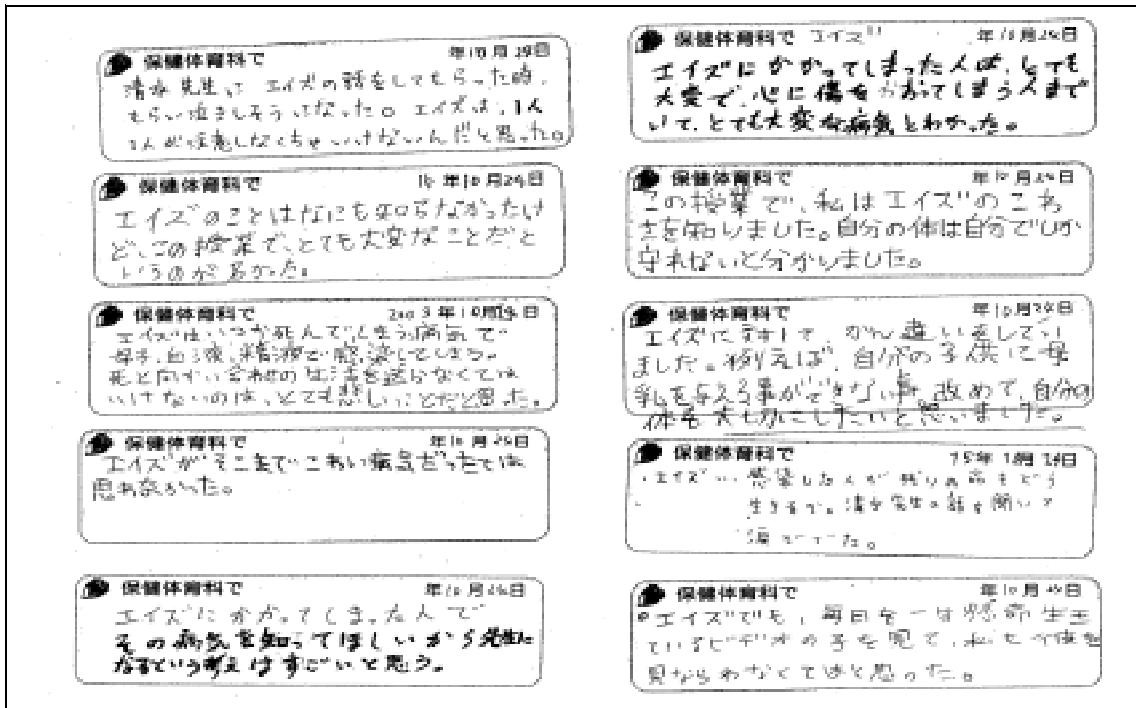 保健体育科で 年10月29日
清水先生に エイズの話をしてもらった時、
もらい泣きしそうになった。エイズは、1人
1人が注意しなくちゃいけないんだと思った。
保健体育科で 15年10月29日
エイズのことはなにも知らなかったけ
ど、この授業で、とても大変なことだと
いうのが
保健体育科で 2003年10月 日
エイズはいつか死んでしまう病気で
母子、血液、精液で感染してしまう。
死と向かい合わせの生活を送らなくては
いけないのは、とても悲しいことだと思った。
保健体育科で 年10月29日
エイズがそこまでこわい病気だったとは
思わなかった。
保健体育科で 年10月 日
エイズにかかってしまった人で
その病気を知ってほしいから先生に
なるという考えはすごいと思う。
保健体育科で エイズ 年10月 日
エイズにかかってしまった人は、とても
大変で、心に傷をおってしまう人まで
いて、とても大変な病気とわかった。
保健体育科で 年10月29日
この授業で、私はエイズのこわ
さを知りました。自分の体は自分でしか
守れないと分かりました。
保健体育科で 年10月29日
エイズに対して、かん違いをしてい
ました。例えば、自分の子供に母
乳を与える事ができない事。改めて、自分の
体を大切にしたいと思いました。
保健体育科で 15年10月29日
・エイズ… 感染した人が残りの命をどう
生きるか。清水先生の話を聞いて
涙
保健体育科で 年10月 日
エイズでも、毎日を一生懸命生き
ているビデオの子を見て、私も
見ならわなくてはと思った。